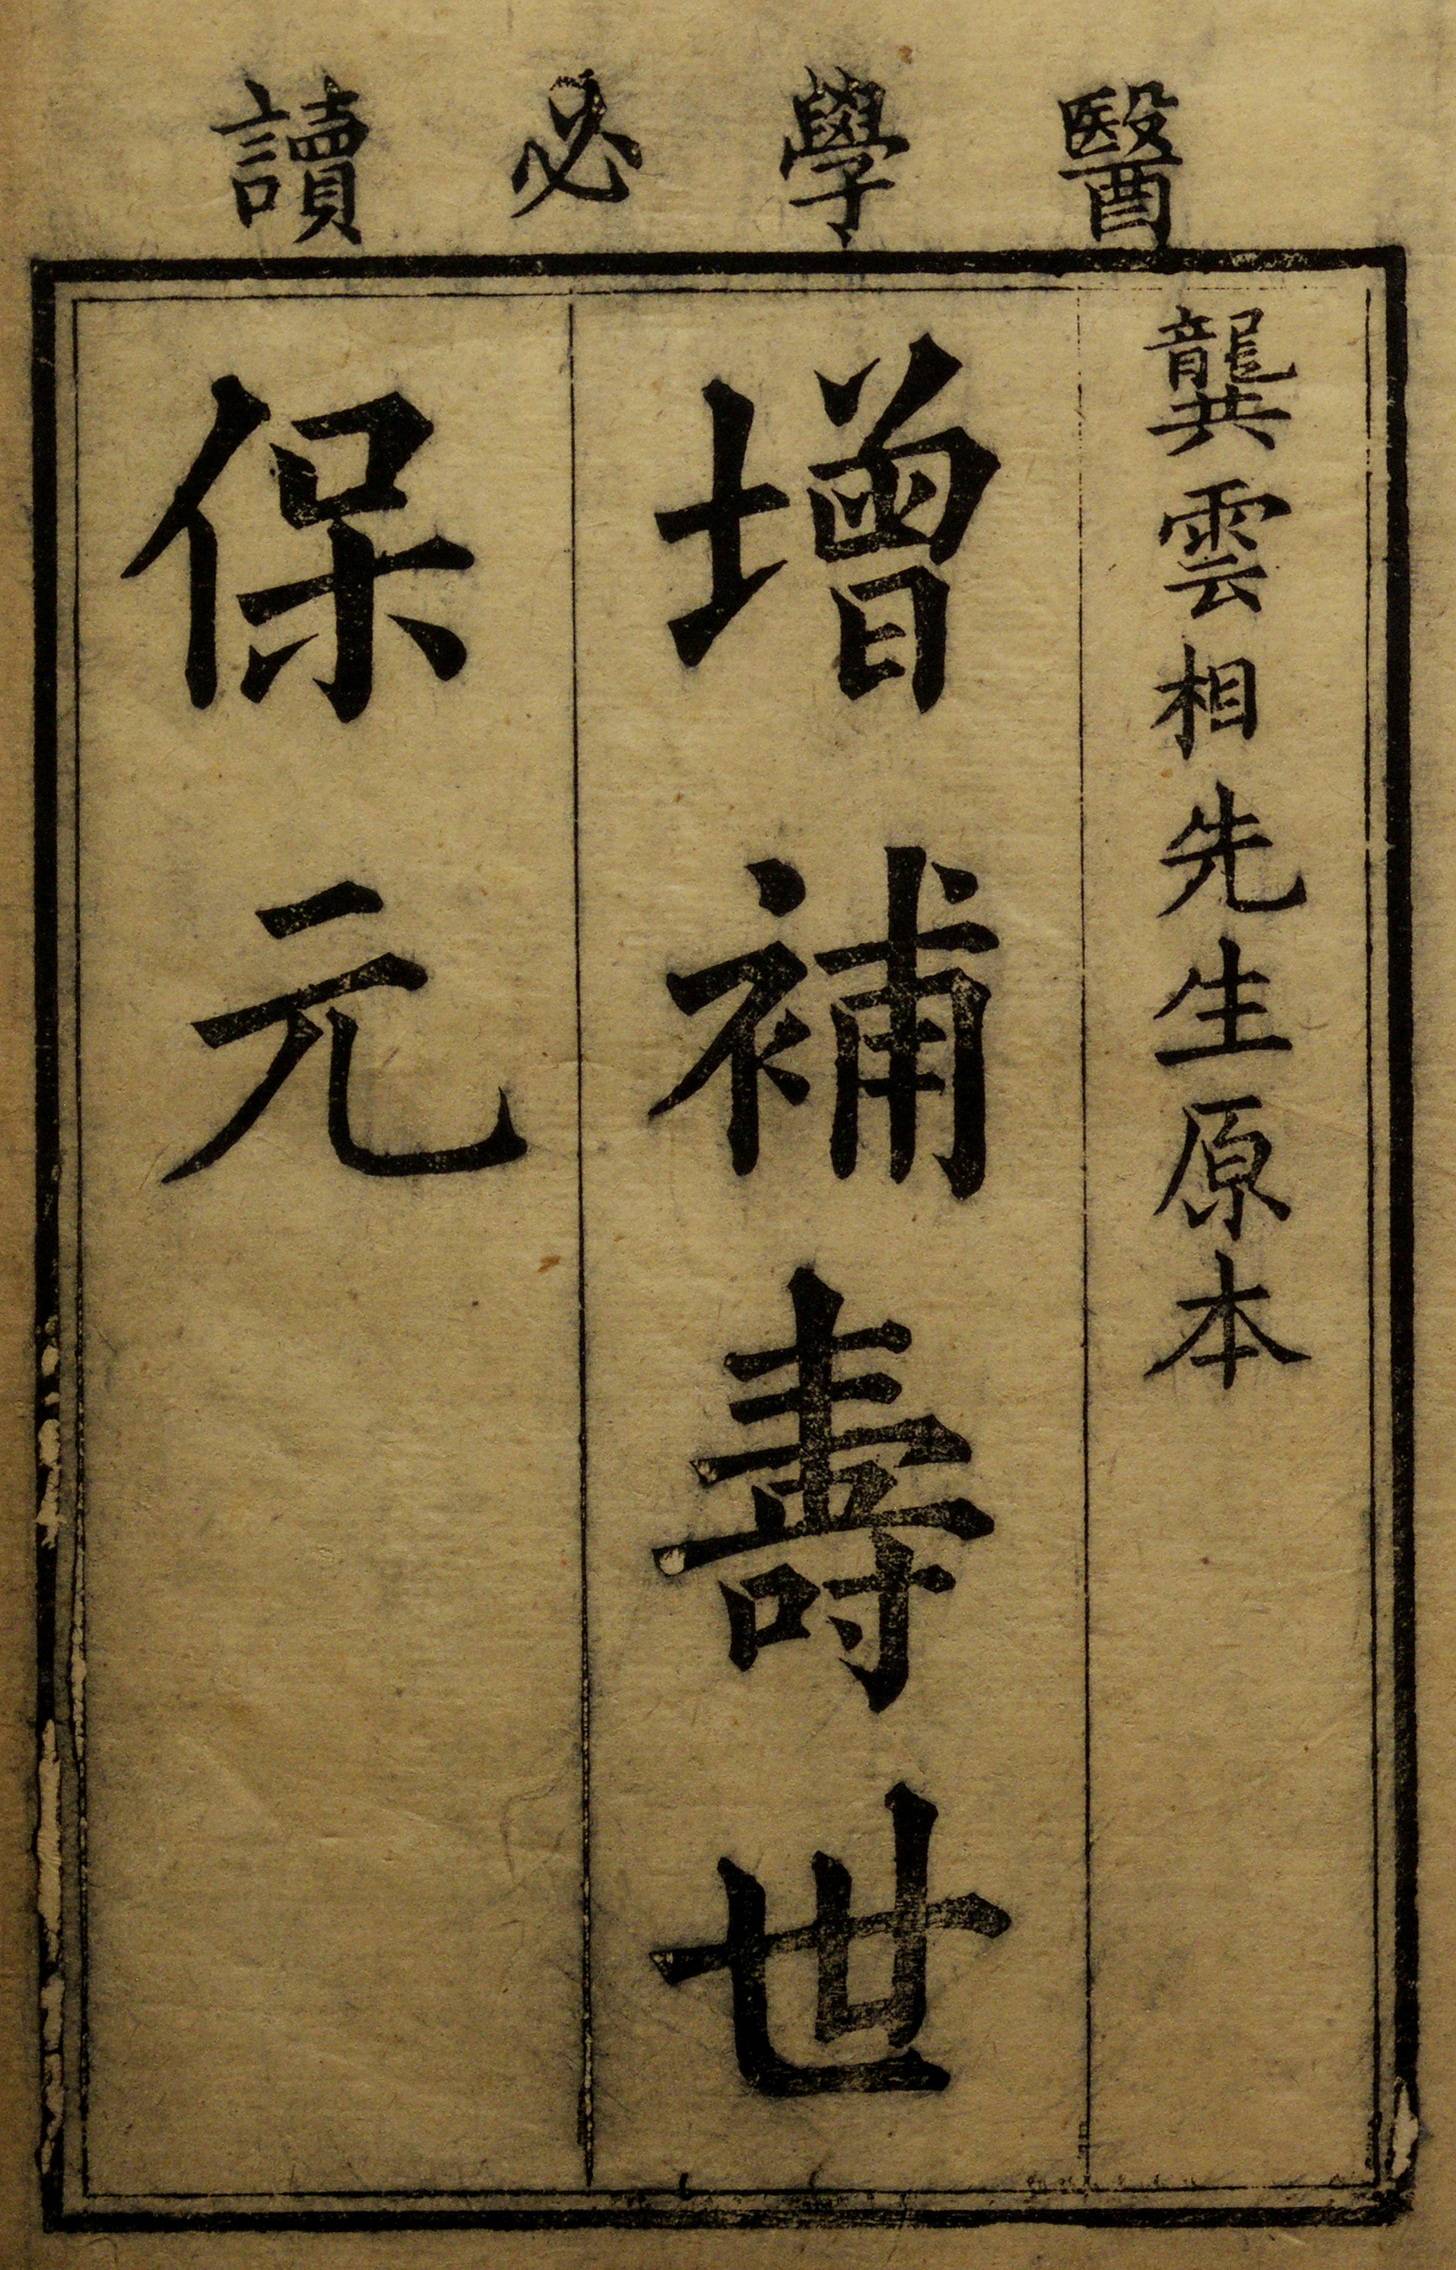 醫學必讀
龔雲相先生原本
增補壽世
保元